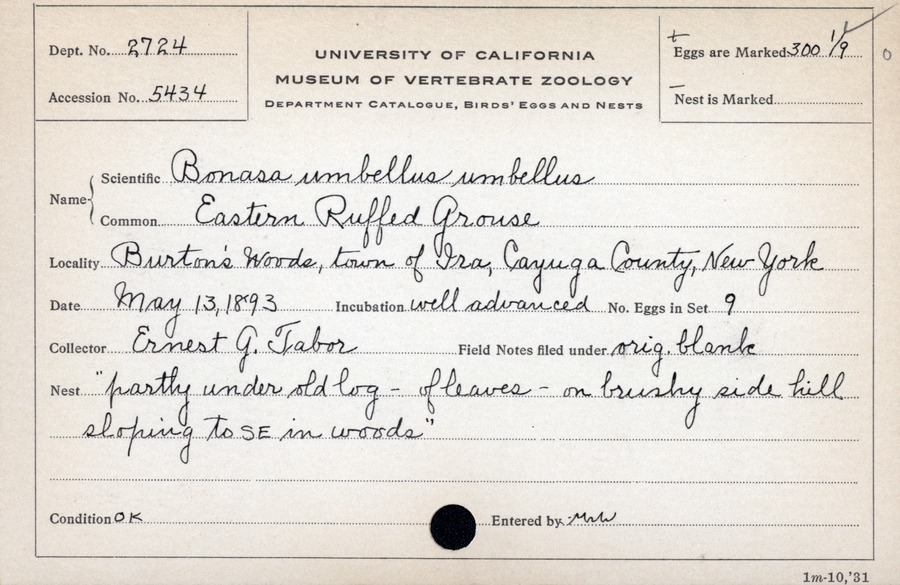 Dept. No. 2724
Accession No. 5434
UNIVERSITY OF CALIFORNIA
MUSEUM OF VERTEBRATE ZOOLOGY
DEPARTMENT CATALOGUE, BIRDS' EGGS AND NESTS
Eggs are Marked 300 1/9
Nest is Marked
0
Name
Scientific Bonasa umbellus umbellus
Common Eastern Ruffed Grouse
Locality Burton's Woods, town of Ira, Cayuga County, New York
Date May 13, 1893 Incubation well advanced No. Eggs in Set 9
Collector Ernest G. Tabor Field Notes filed under orig. blank
Nest "partly under old log - of leaves - on brushy side hill
sloping to SE in woods"
Condition OK Entered by
1m-10,'31